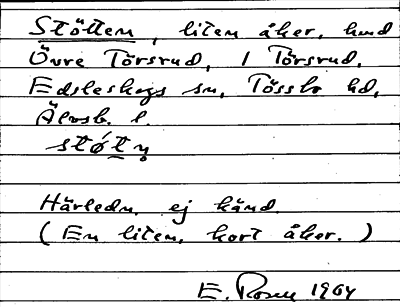 Stötten, liten åker, hmd
Övre Törsrud, 1 Törsrud,
Edsleskogs sn, Tössbo hd,
Älvsb. l.
Härledn. ej känd
(En liten, kort åker.)
E. Rosen 1964